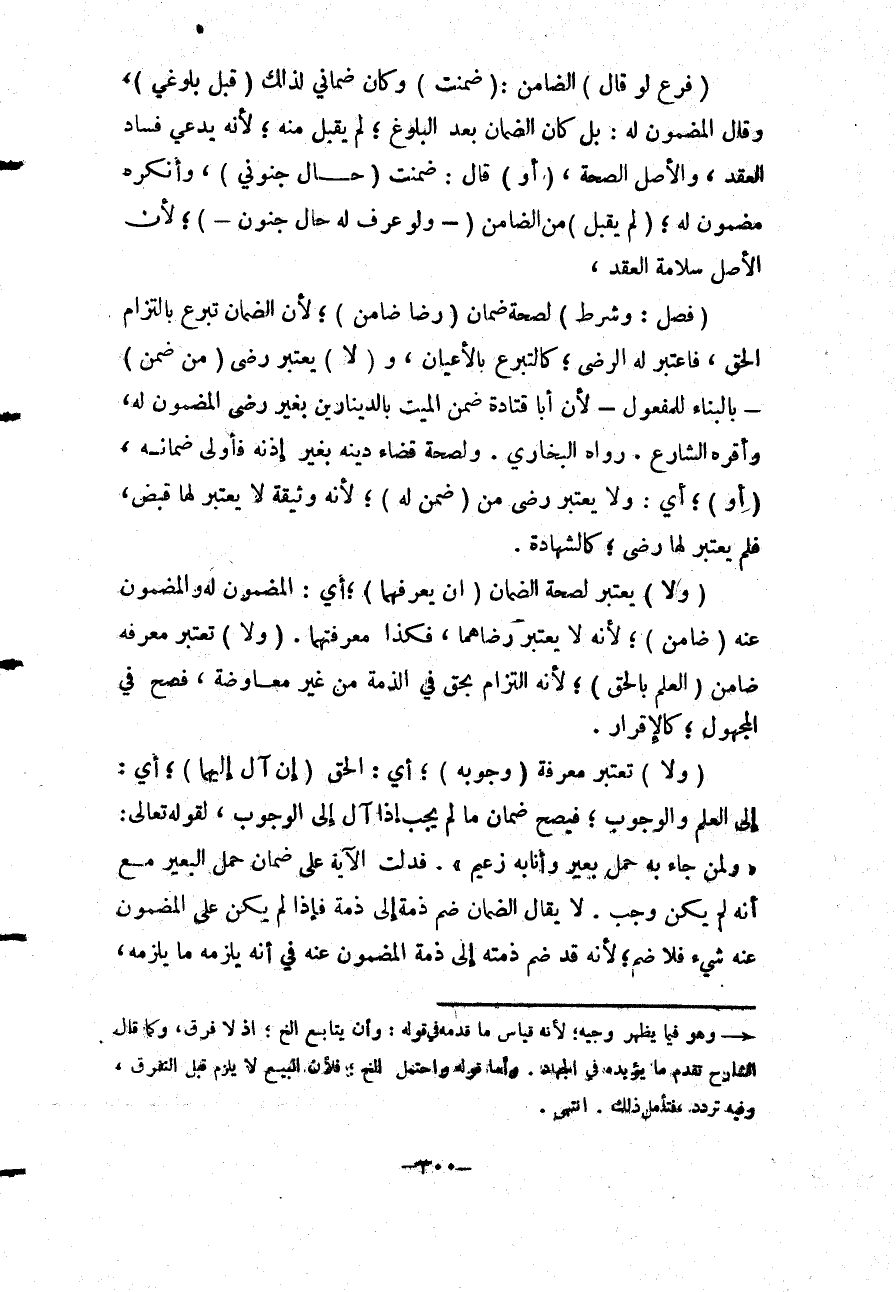 ( فرع لو قال ) الضامن : ( ضمنت ) وكان ضماني لذلك ( قبل بلوغي ) ،
وقال المضمون له : بل كان الضمان بعد البلوغ ؛ لم يقبل منه ؛ لأنه يدعي فساد
العقد ، والأصل الصحة ، ( أو ) قال : ضمنت ( حـــال جنوني ) ، وأنكره
مضمون له ؛ ( لم يقبل ) من الضامن ( – ولو عرف له حال جنون – ) ؛ لأن
الأصل سلامة العقد ،
( فصل : وشرط ) لصحة ضمان ( رضا ضامن ) ؛ لأن الضمان تبرع بالتزام
الحق ، فاعتبر له الرضى ؛ كالتبرع بالأعيان ، و ( لا ) يعتبر رضى ( من ضمن )
– بالبناء للمفعول – لأن أبا قتادة ضمن الميت بالدينارين بغير رضى المضمون له ،
وأقره الشارع . رواه البخاري . ولصحة قضاء دينه بغير إذنه فأولى ضمانــه ،
( أو ) ؛ أي : ولا يعتبر رضى من ( ضمن له ) ؛ لأنه وثيقة لا يعتبر لها قبض ،
فلم يعتبر لها رضى ؛ كالشهادة .
( ولا ) يعتبر لصحة الضمان ( ان يعرفهما ) ؛ أي : المضمون له والمضمون
عنه ( ضامن ) ؛ لأنه لا يعتبر رضاهما ، فكذا معرفتهما . ( ولا ) تعتبر معرفه
ضامن ( العلم بالحق ) ؛ لأنه التزام بحق في الذمة من غير معــاوضة ، فصح في
المجهول ؛ كالإقرار .
( ولا ) تعتبر معرفة ( وجوبه ) ؛ أي : الحق ( إن آل إليهما ) ؛ أي :
إلى العلم والوجوب ؛ فيصح ضمان ما لم يجب إذا آل إلى الوجوب ، لقوله تعالى :
« ولمن جاء به حمل بعير وأنابه زعيم » . فدلت الآية على ضمان حمل البعير مــع
أنه لم يكن وجب . لا يقال الضمان ضم ذمة إلى ذمة فإذا لم يكن على المضمون
عنه شيء فلا ضم ؛ لأنه قد ضم ذمته إلى ذمة المضمون عنه في أنه يلزمه ما يلزمه ،
← وهو فيما يظهر وجيه ؛ لأنه قياس ما قدمه في قوله : وأن يتابع الخ ؛ اذ لا فرق ، وكما قال
الشارح تقدم ما يؤيده في الجهاد . وأما قوله واحتمل الخ ؛ فلأن البيع لا يلزم قبل التفرق ،
وفيه تردد ، فتأمل ذلك . انتهى .
–٣٠٠–